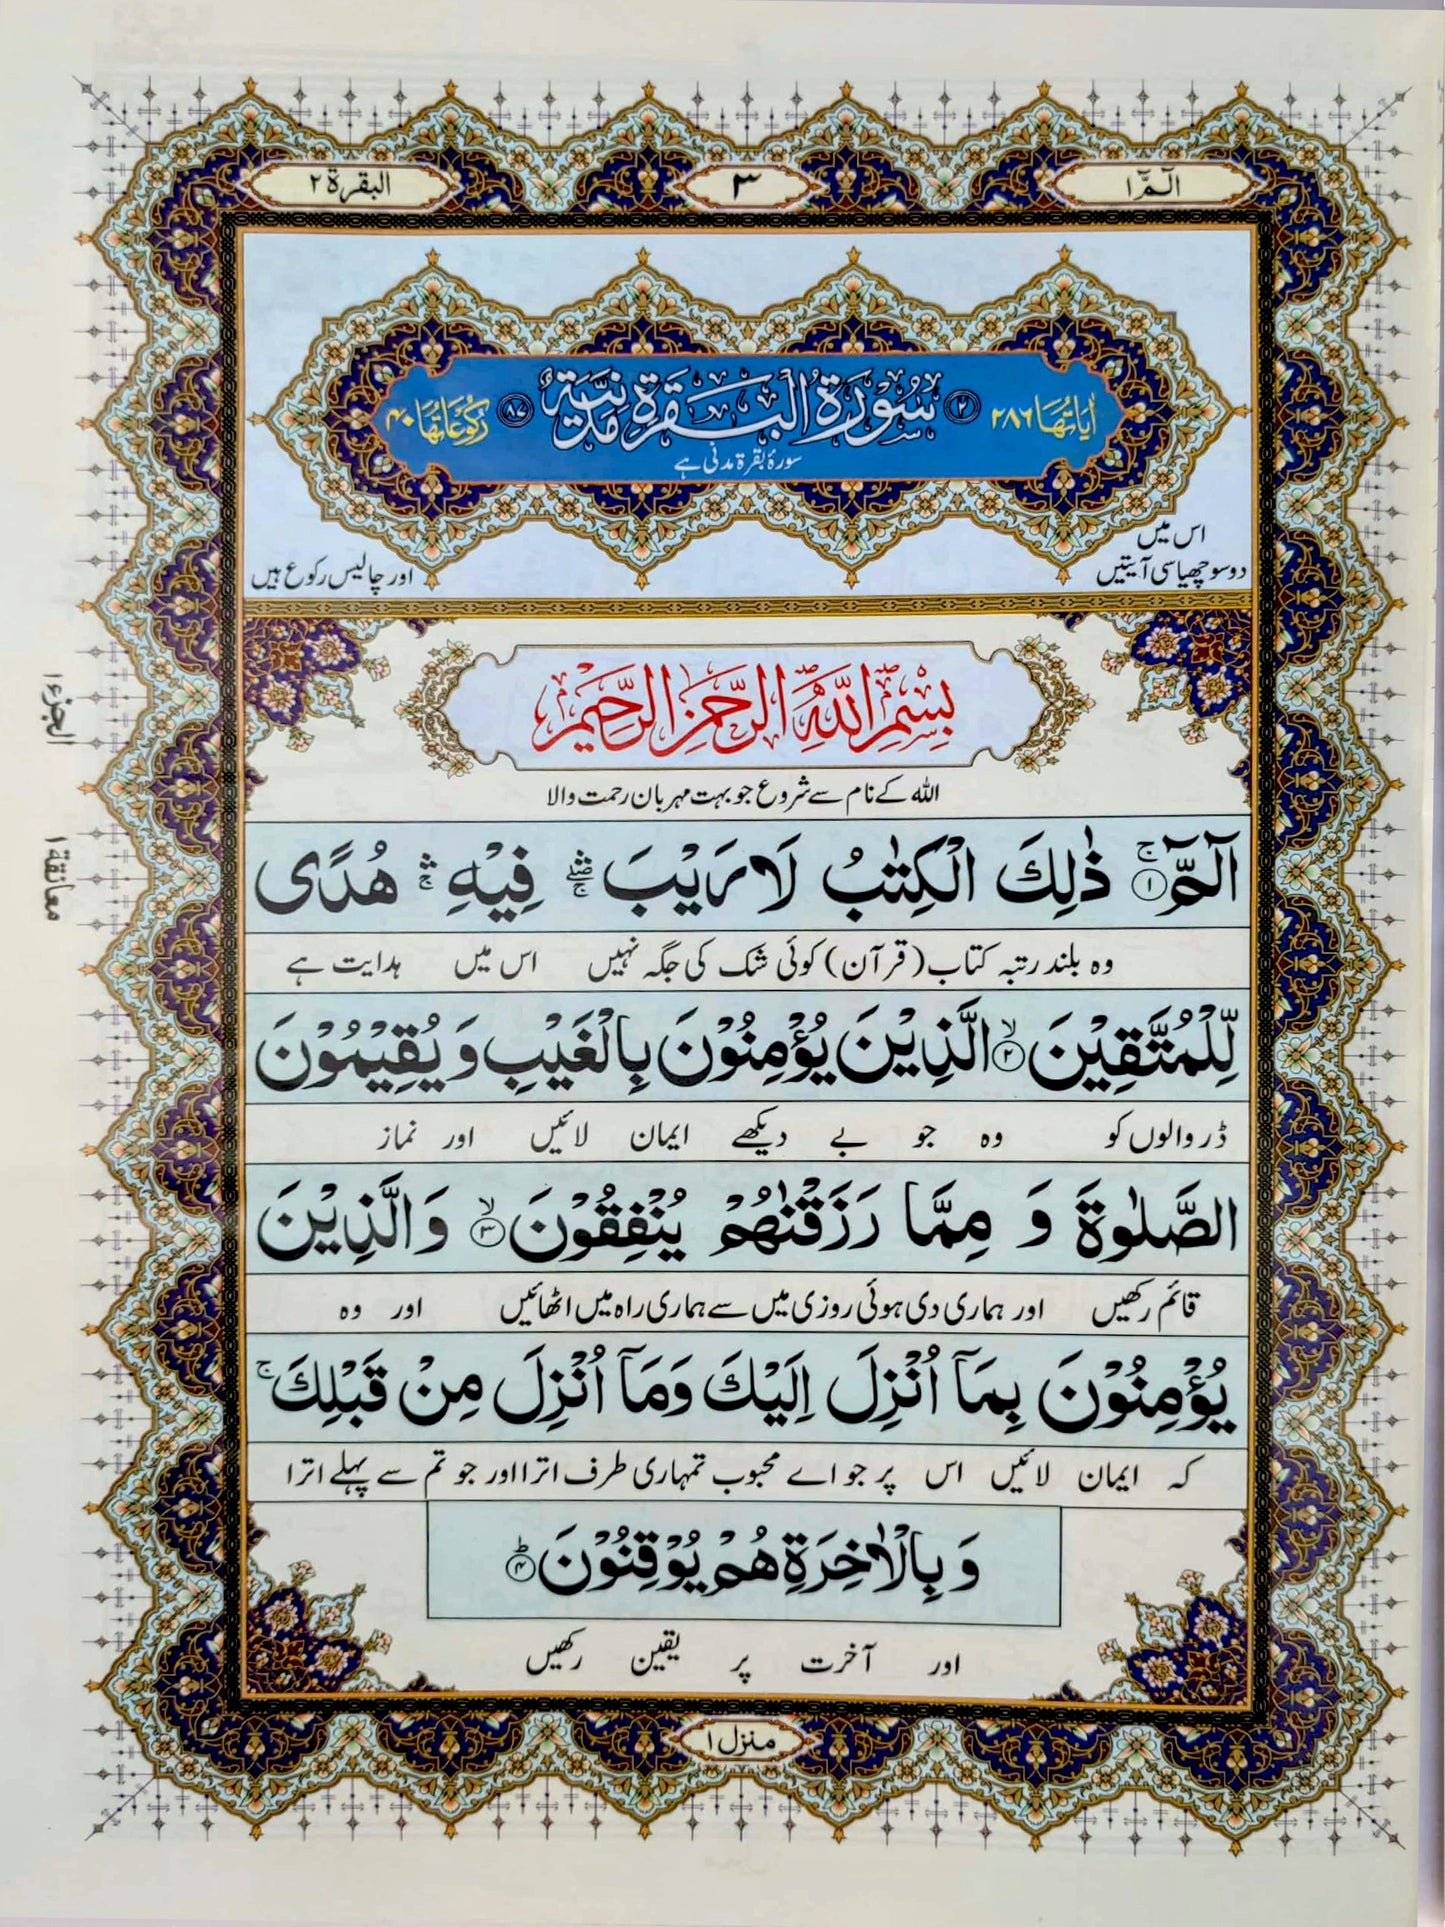 الٓمّٓ ۱
۳
البقرة ۲
اٰيَاتُهَا ۲۸۶
۲ سُوْرَةُ الْبَقَرَةِ مَدَنِيَّةٌ ۸۷
رُكُوْعَاتُهَا ۴۰
سورۂ بقرۃ مدنی ہے
اس میں
دوسو چھیاسی آیتیں
اور چالیس رکوع ہیں
بِسْمِ اللّٰهِ الرَّحْمٰنِ الرَّحِيْمِ
اللہ کے نام سے شروع جو بہت مہربان رحمت والا
الٓمّٓ ۚ‏﴿۱﴾ ذٰلِكَ الْكِتٰبُ لَا رَيْبَ ۛۖۚ فِيْهِ ۛۚ هُدًى
وہ بلند رتبہ کتاب (قرآن) کوئی شک کی جگہ نہیں اس میں ہدایت ہے
لِّلْمُتَّقِيْنَ ۙ﴿۲﴾ الَّذِيْنَ يُؤْمِنُوْنَ بِالْغَيْبِ وَ يُقِيْمُوْنَ
ڈر والوں کو وہ جو بے دیکھے ایمان لائیں اور نماز
الصَّلٰوةَ وَ مِمَّا رَزَقْنٰهُمْ يُنْفِقُوْنَ ۙ﴿۳﴾ وَالَّذِيْنَ
قائم رکھیں اور ہماری دی ہوئی روزی میں سے ہماری راہ میں اٹھائیں اور وہ
يُؤْمِنُوْنَ بِمَاۤ اُنْزِلَ اِلَيْكَ وَمَاۤ اُنْزِلَ مِنْ قَبْلِكَ ۚ
کہ ایمان لائیں اس پر جو اے محبوب تمہاری طرف اترا اور جو تم سے پہلے اترا
وَ بِالْاٰخِرَةِ هُمْ يُوْقِنُوْنَ ؕ﴿۴﴾
اور آخرت پر یقین رکھیں
منزل ۱
الجزء ۱
معانقة ۱